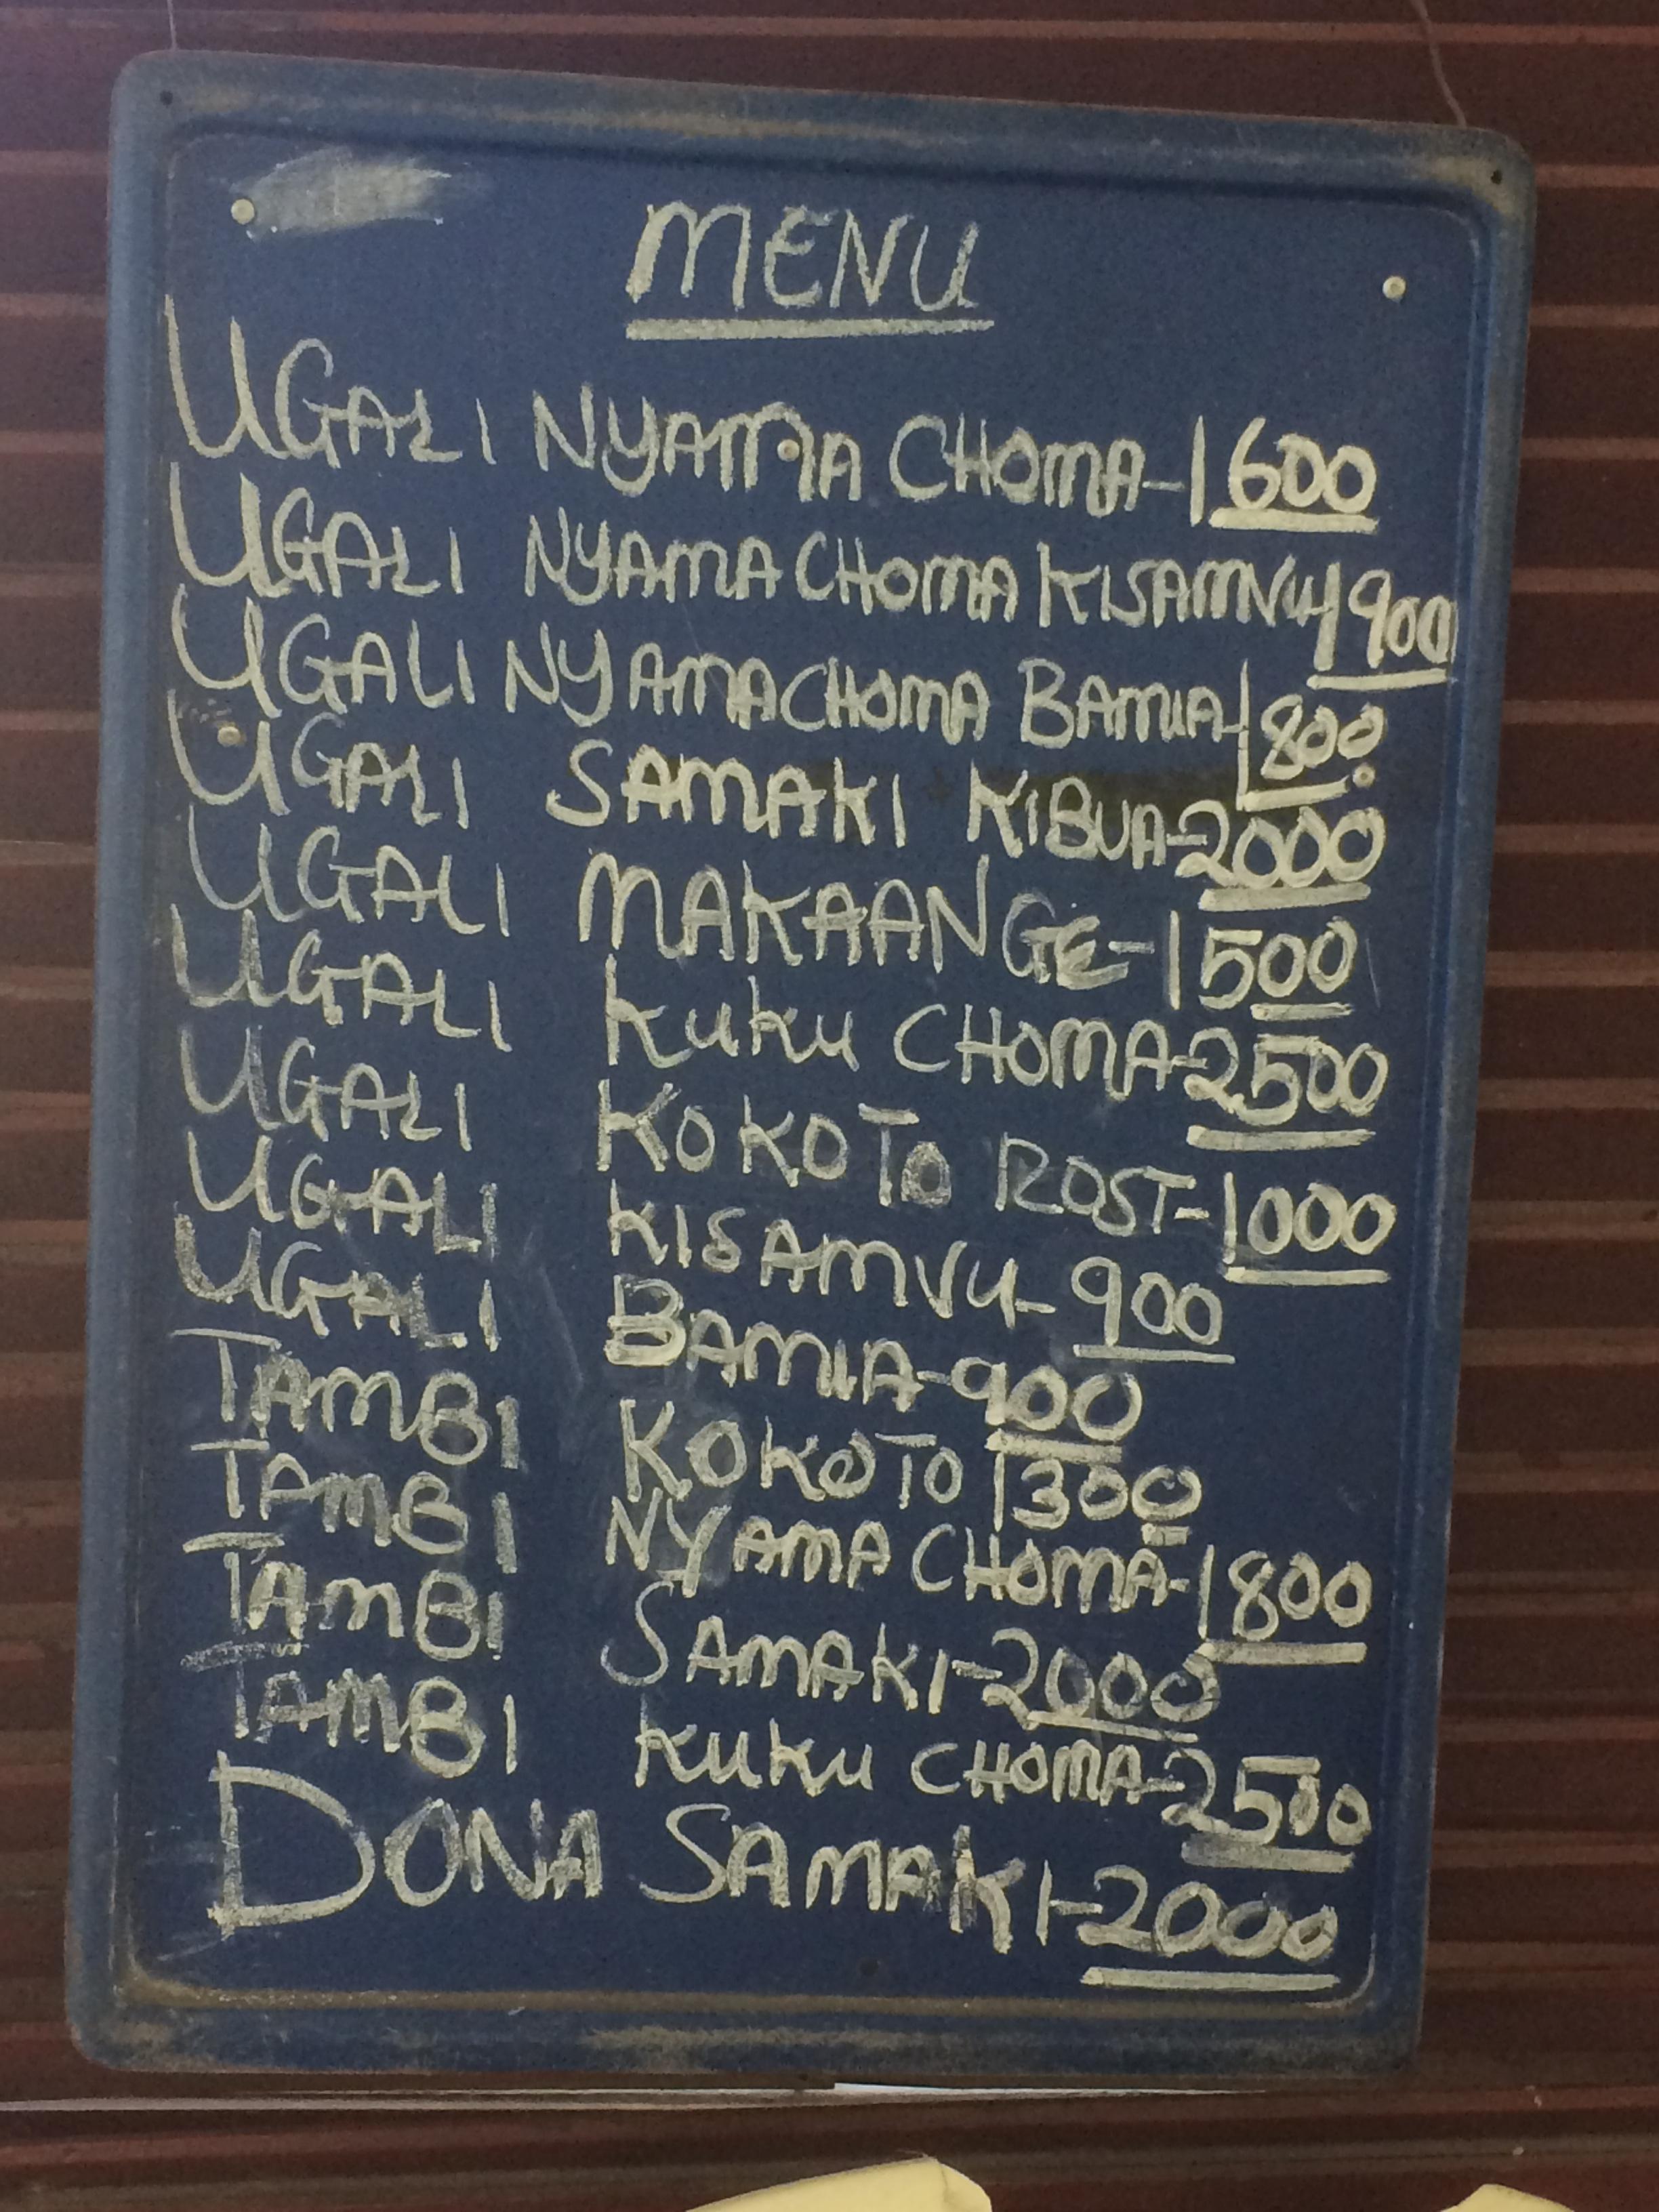 MENU
UGALI NYAMA CHOMA-1600
UGALI NYAMA CHOMA KISAMVU-1900
UGALI NYAMA CHOMA BAMIA-1800
UGALI SAMAKI KIBUA-2000
UGALI MAKAANGE-1500
UGALI KUKU CHOMA-2500
UGALI KOKOTO ROST-1000
UGALI KISAMVU-900
UGALI BAMIA-900
TAMBI KOKOTO 1300
TAMBI NYAMA CHOMA-1800
TAMBI SAMAKI-2000
TAMBI KUKU CHOMA-2500
DONA SAMAKI-2000